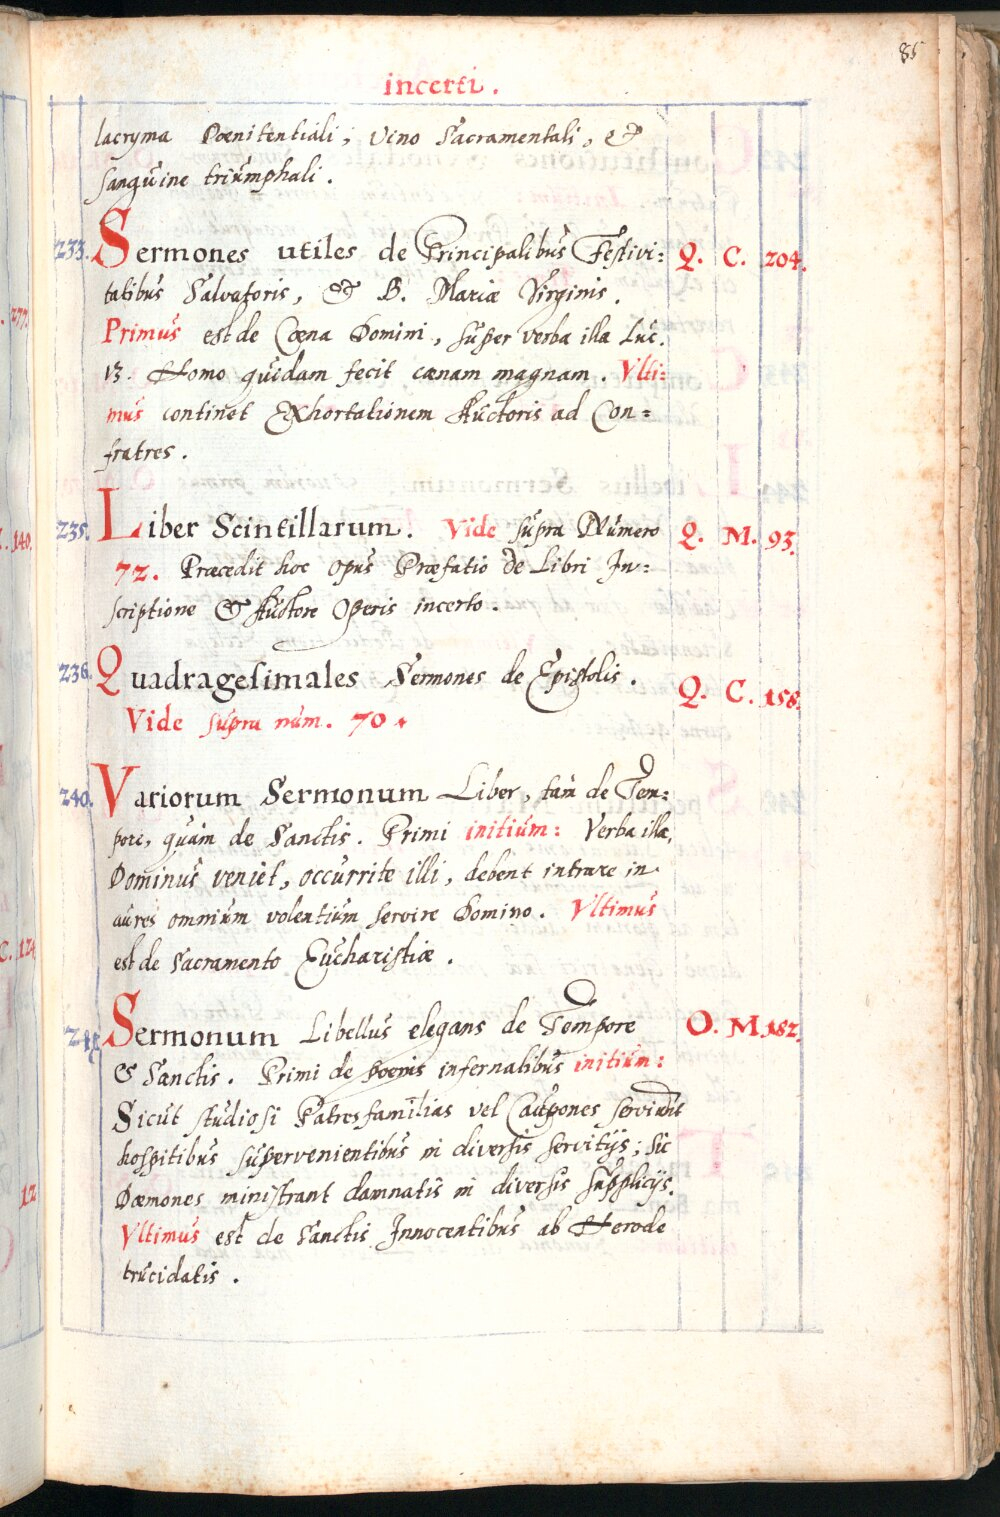 85
incerti.
lacryma Pœnitentiali, Vino Sacramentali, &
sanguine triumphali.
233. Sermones utiles de Principalibus Festivi: Q. C. 204.
tatibus Salvatoris, & B. Mariæ Virginis.
Primus est de Cœna Domini, super verba illa Luc.
13. Homo quidam fecit cænam magnam. Vlti:
mus continet Exhortationem Auctoris ad Con=
fratres.
235. Liber Scintillarum. Vide supra Numero Q. M. 93.
72. Præcedit hoc opus Præfatio de Libri In:
scriptione & Auctore Operis incerto.
236. Quadragesimales Sermones de Epistolis. Q. C. 158.
Vide supra num. 70.
240. Variorum Sermonum Liber, tam de Tem:
pore, quàm de Sanctis. Primi initium: Verba illa,
Dominus veniet, occurrite illi, debent intrare in
aures omnium volentium servire Domino. Vltimus
est de Sacramento Eucharistiæ.
Sermonum Libellus elegans de Tempore O. M. 182.
& Sanctis. Primi de poenis infernalibus initium:
Sicut studiosi Patresfamilias vel Caupones serviunt
hospitibus supervenientibus in diversis servitijs; sic
Dæmones ministrant damnatis in diversis supplicijs.
Vltimus est de Sanctis Innocentibus ab Herode
trucidatis.